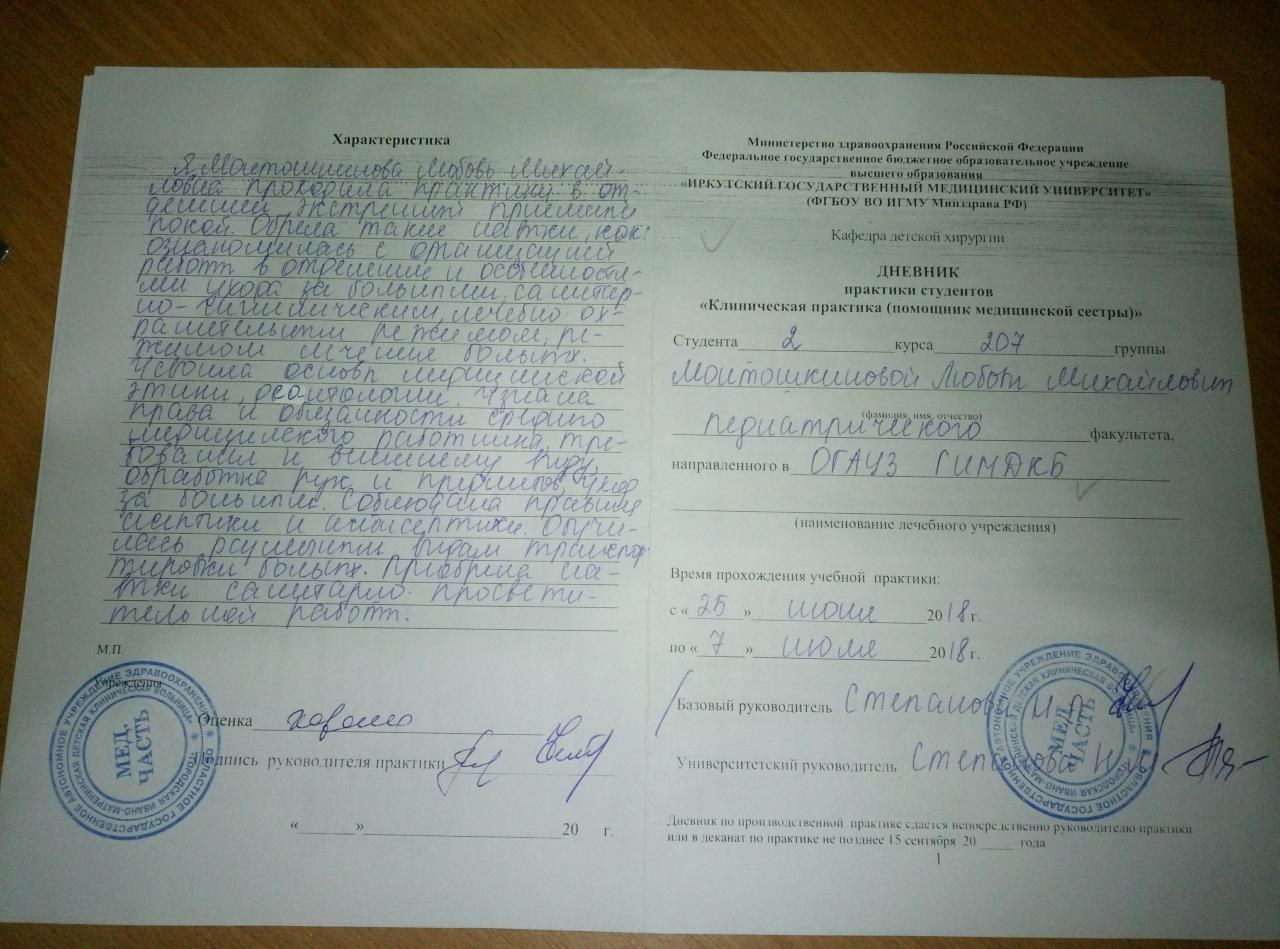 Характеристика
Я, Мантошкинова Любовь Михай-
ловна проходила практику в от-
делении экстренной приемный
покой. Обрела такие навыки, как:
ознакомилась с организацией
работы в отделение и особенностя-
ми ухода за больными, санитар-
но-гигиеническим, лечебно ох-
ранительным режимом, ре-
жимом лечения больных.
Усвоила основы медицинской
этики, деонтологии. Узнала
права и обязанности среднего
медицинского работника, тре-
бования к внешнему виду,
обработка рук и предметов, уход
за больными. Соблюдала правила
асептики и антисептики. Обучи-
лась различным видам транспор-
тировки больных. Приобрела на-
выки санитарно-просвети-
тельной работы.
М.П.
Учреждения
Оценка хорошо
Подпись руководителя практики
«______»______ 20 г.
ОБЛАСТНОЕ ГОСУДАРСТВЕННОЕ АВТОНОМНОЕ УЧРЕЖДЕНИЕ ЗДРАВООХРАНЕНИЯ
«ГОРОДСКАЯ ИВАНО-МАТРЕНИНСКАЯ ДЕТСКАЯ КЛИНИЧЕСКАЯ БОЛЬНИЦА»
МЕД.
ЧАСТЬ
Министерство здравоохранения Российской Федерации
Федеральное государственное бюджетное образовательное учреждение
высшего образования
«ИРКУТСКИЙ ГОСУДАРСТВЕННЫЙ МЕДИЦИНСКИЙ УНИВЕРСИТЕТ»
(ФГБОУ ВО ИГМУ Минздрава РФ)
Кафедра детской хирургии
ДНЕВНИК
практики студентов
«Клиническая практика (помощник медицинской сестры)»
Студента 2 курса 207 группы
Мантошкиновой Любови Михайловны
(фамилия, имя, отчество)
педиатрического факультета,
направленного в ОГАУЗ ГИМДКБ
(наименование лечебного учреждения)
Время прохождения учебной практики:
с «25» июня 2018 г.
по «7» июля 2018 г.
Базовый руководитель Степанова
Университетский руководитель Степанова Н.М
ОБЛАСТНОЕ ГОСУДАРСТВЕННОЕ АВТОНОМНОЕ УЧРЕЖДЕНИЕ ЗДРАВООХРАНЕНИЯ
«ГОРОДСКАЯ ИВАНО-МАТРЕНИНСКАЯ ДЕТСКАЯ КЛИНИЧЕСКАЯ БОЛЬНИЦА»
МЕД.
ЧАСТЬ
Дневник по производственной практике сдается непосредственно руководителю практики
или в деканат по практике не позднее 15 сентября 20 _____ года
1